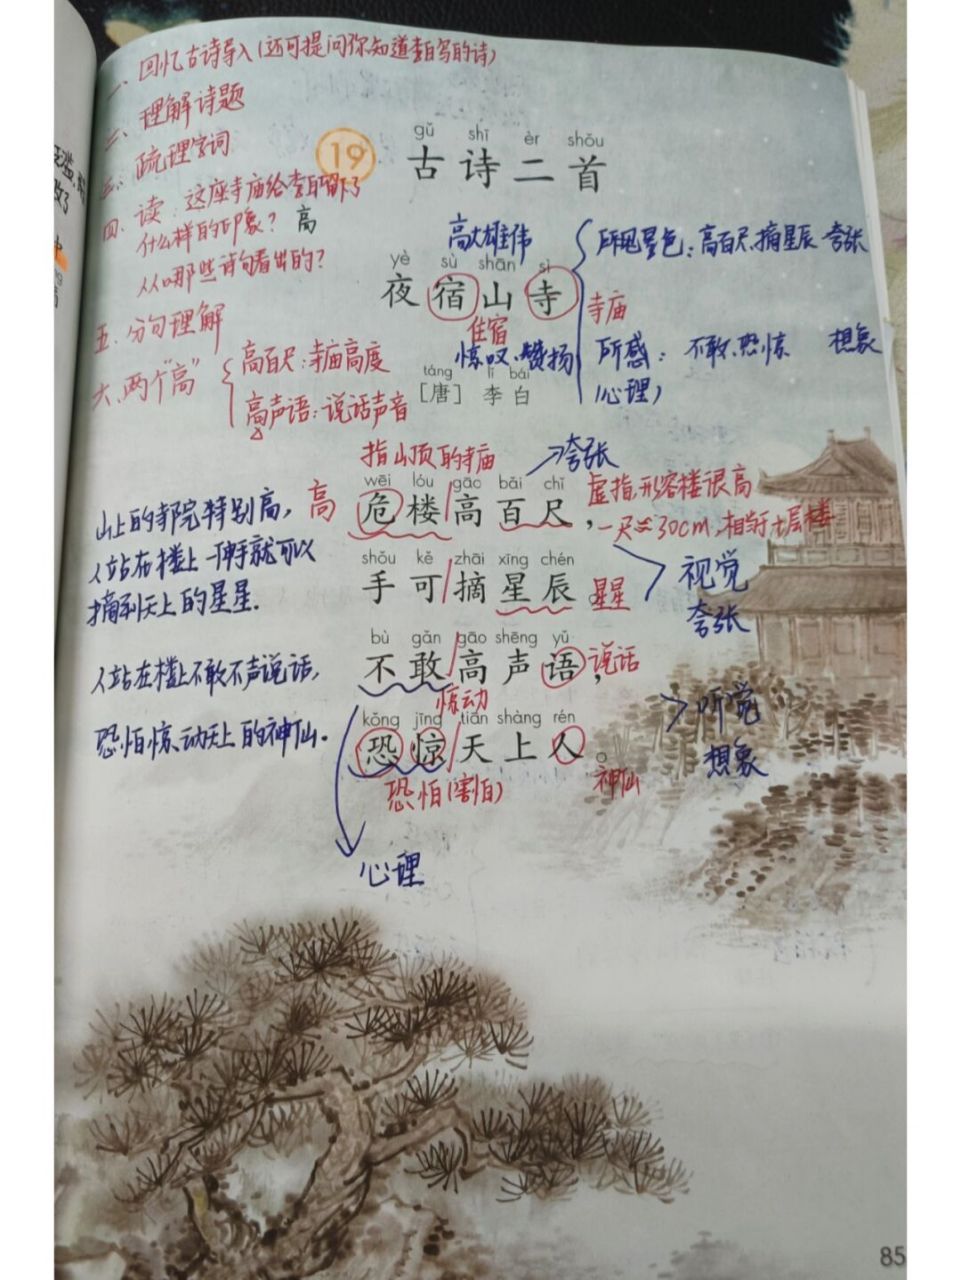 一、回忆古诗导入(还可提问你知道李白写的诗)
二、理解诗题
三、疏理字词
四、读：这座寺庙给李白留下了
什么样的印象？高
从哪些诗句看出的？
五、分句理解
六、两个“高”
高百尺：寺庙高度
高声语：说话声音
19
gǔ shī èr shǒu
古诗二首
高大雄伟
yè sù shān sì
夜宿山寺
住宿
寺庙
惊叹、赞扬
táng lǐ bái
［唐］李白
所见景色：高百尺、摘星辰 夸张
所感：不敢、恐惊 想象
(心理)
指山顶的寺庙
夸张
wēi lóu gāo bǎi chǐ
高
危楼/高百尺，
虚指，形容楼很高
一尺≈30cm，相当于七层楼
shǒu kě zhāi xīng chén
手可/摘星辰。
星星
视觉
夸张
bù gǎn gāo shēng yǔ
不敢/高声语，
说话
惊动
听觉
想象
kǒng jīng tiān shàng rén
恐惊/天上人。
恐怕(害怕)
神仙
心理
山上的寺院特别高，
人站在楼上一伸手就可以
摘到天上的星星.
人站在楼上不敢大声说话，
恐怕惊动天上的神仙.
85